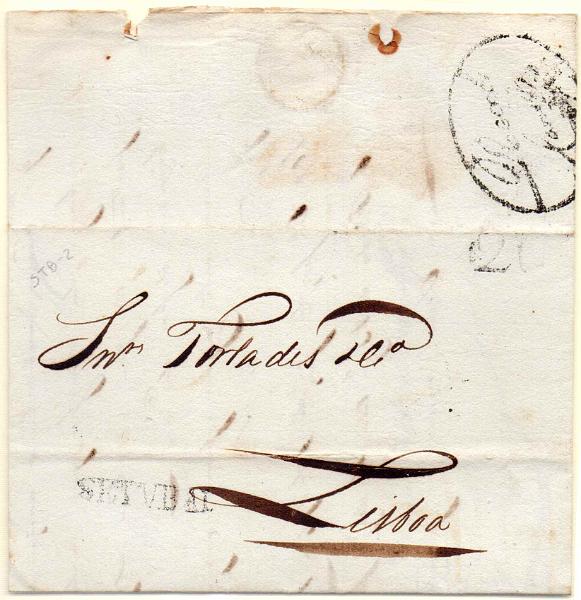 20
STB-2
Snrs Torlades & Cª
SETUBAL
Lisboa